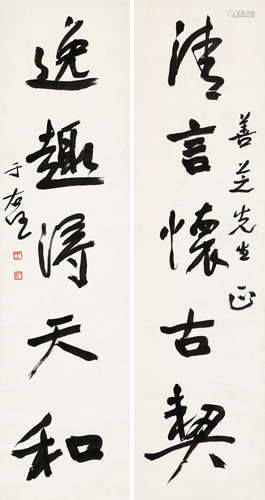 善芝先生正
清言懷古契
逸趣得天和
于右任